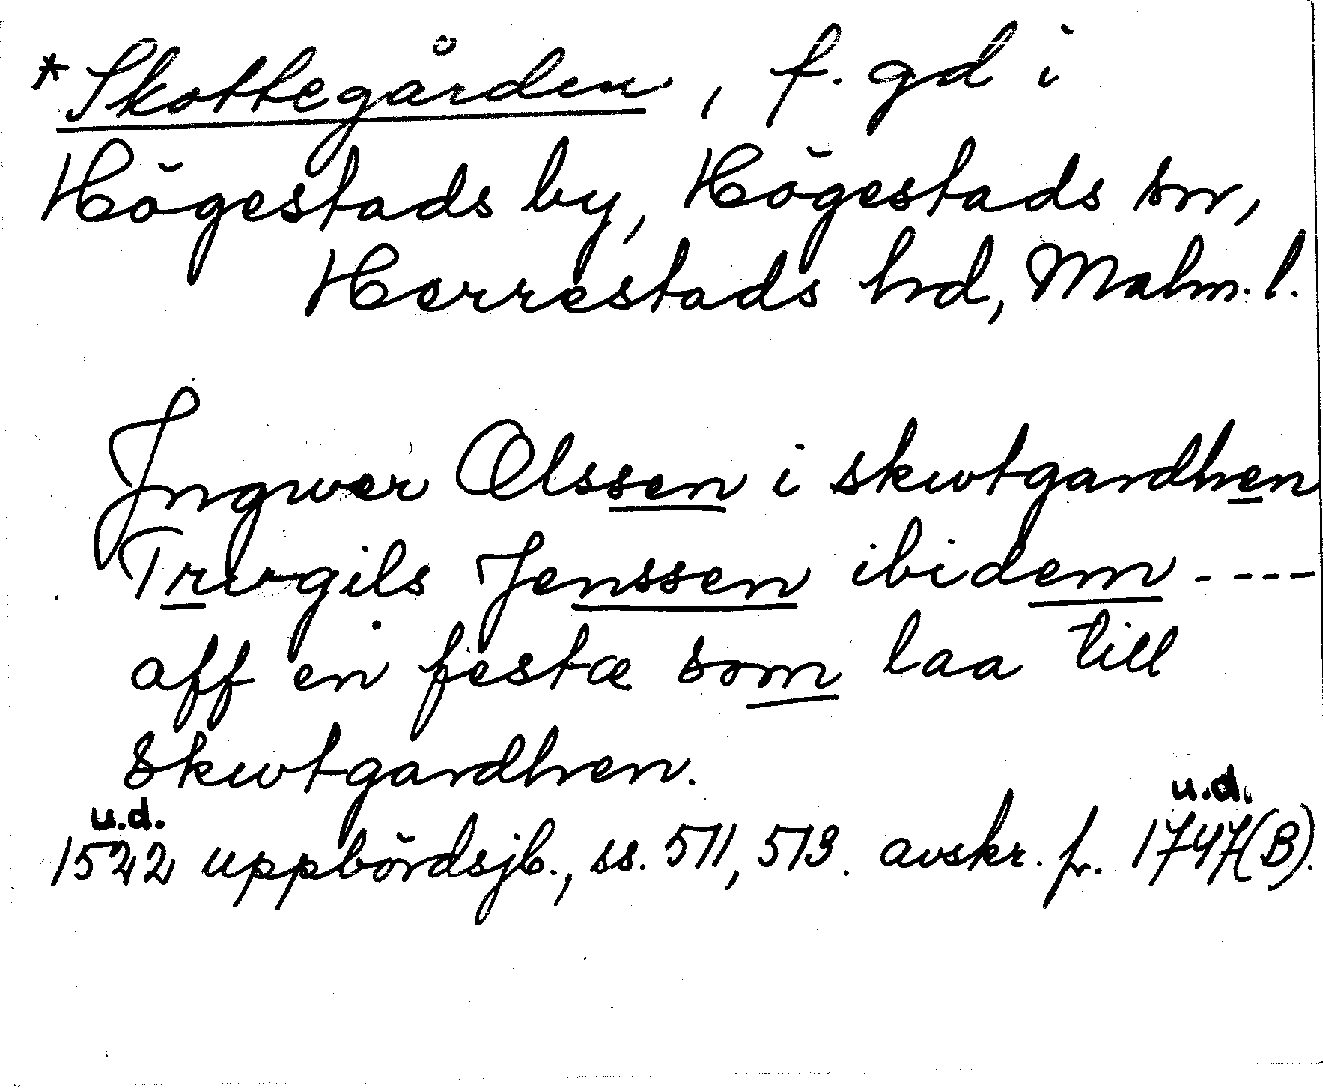 *Skottegården, f. gd i
Högestads by, Högestads sn,
Herrestads hd, Malm. l.
Jngwer Olssen i skwtgardhen
Trwgils Jenssen ibidem ----
aff en festæ som laa till
Skwtgardhen.
u.d. u.d.
1522 uppbördsjb., ss. 511, 513. avskr. fr. 1747(B).